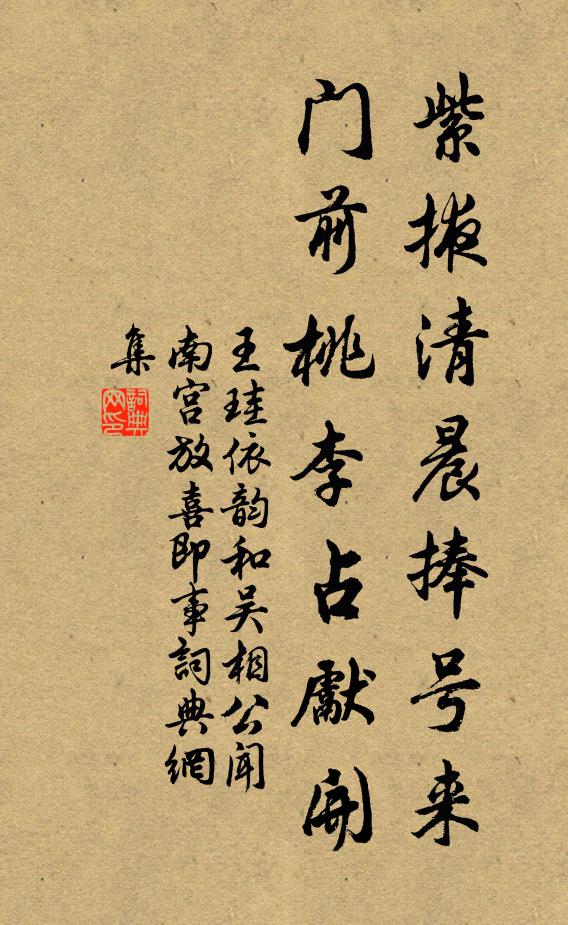 紫掖清晨捧号来
门前桃李占獻開
王珪依韵和吴相公闻
南宫放喜即事詞典網
集
詞典
网印